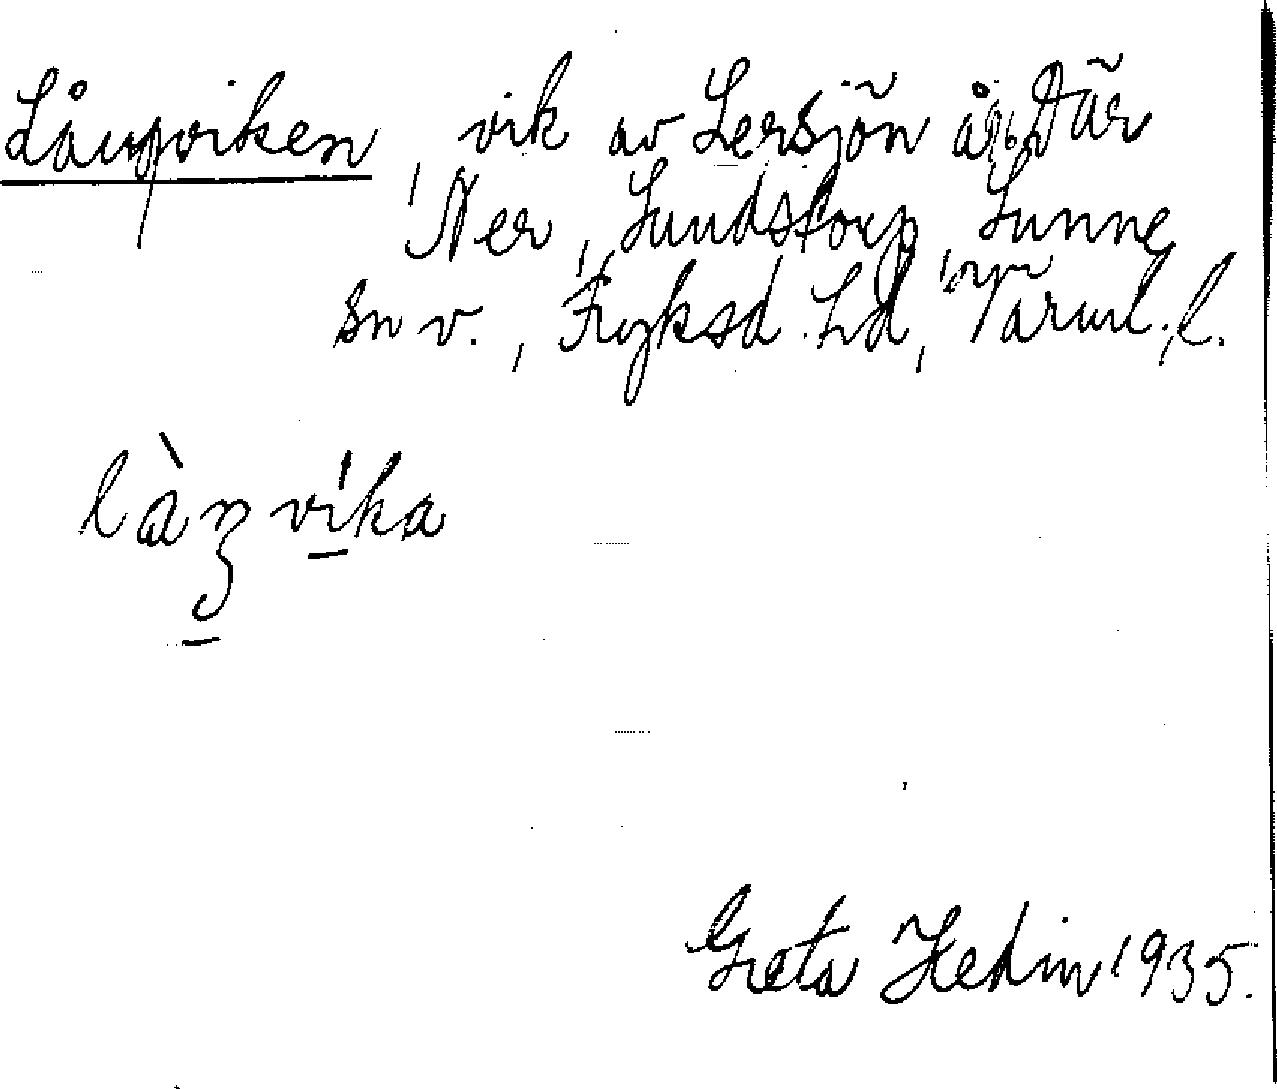 Långviken, vik av Lersjön åt Där
Ner, Sundstorp, Sunne
sn v., Fryksd. hd, Värml. l.
làŋvika
Greta Hedin 1935.